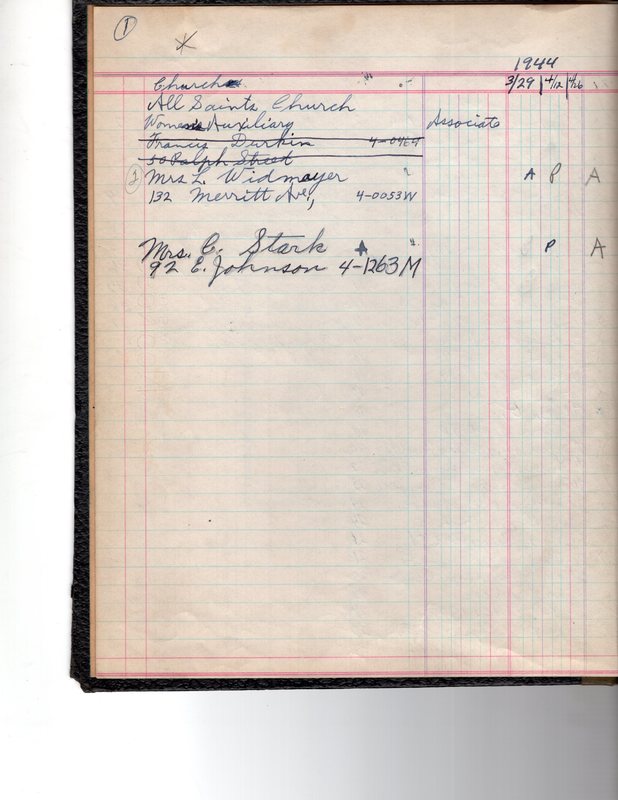 1
1944
Churches 3/29 4/12 4/26
All Saints Church
Women's Auxiliary Associate
Francis Durkin
50 Ralph Street
2 Mrs L. Widmayer A P A
132 Merritt Ave, 4-0053W
Mrs. C. Stark A P A
92 E. Johnson 4-1263M